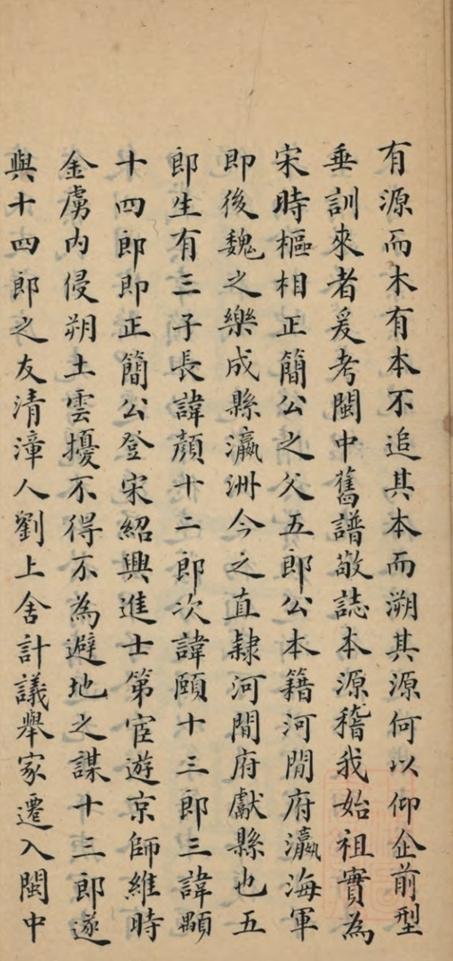 有源而木有本不追其本而溯其源何以仰企前型
垂訓來者爰考閩中舊譜敬誌本源稽我始祖實為
宋時樞相正簡公之父五郎公本籍河間府瀛海軍
即後魏之樂成縣瀛洲今之直隸河間府獻縣也五
郎生有三子長諱顏十二郎次諱頤十三郎三諱顒
十四郎即正簡公登宋紹興進士第宦遊京師維時
金虜内侵朔土雲擾不得不為避地之謀十三郎遂
與十四郎之友清漳人劉上舍計議舉家遷入閩中